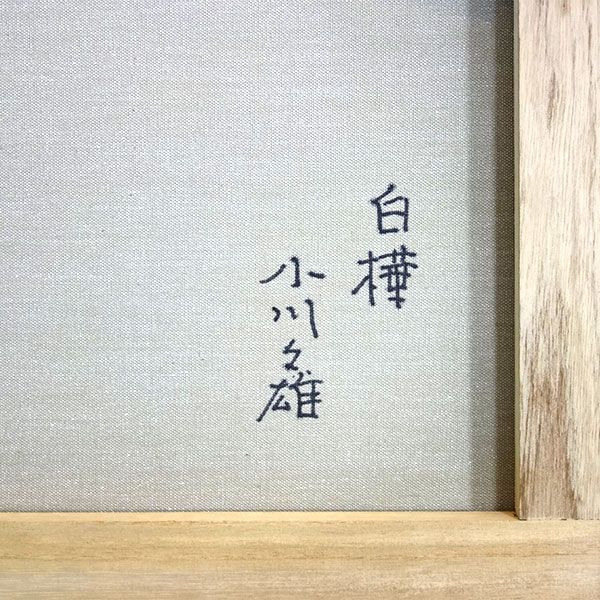 白樺
小川久雄